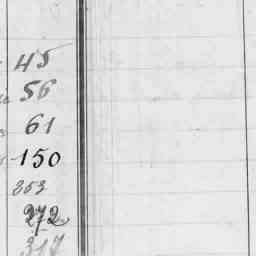 45
56
61
150
353
272
317